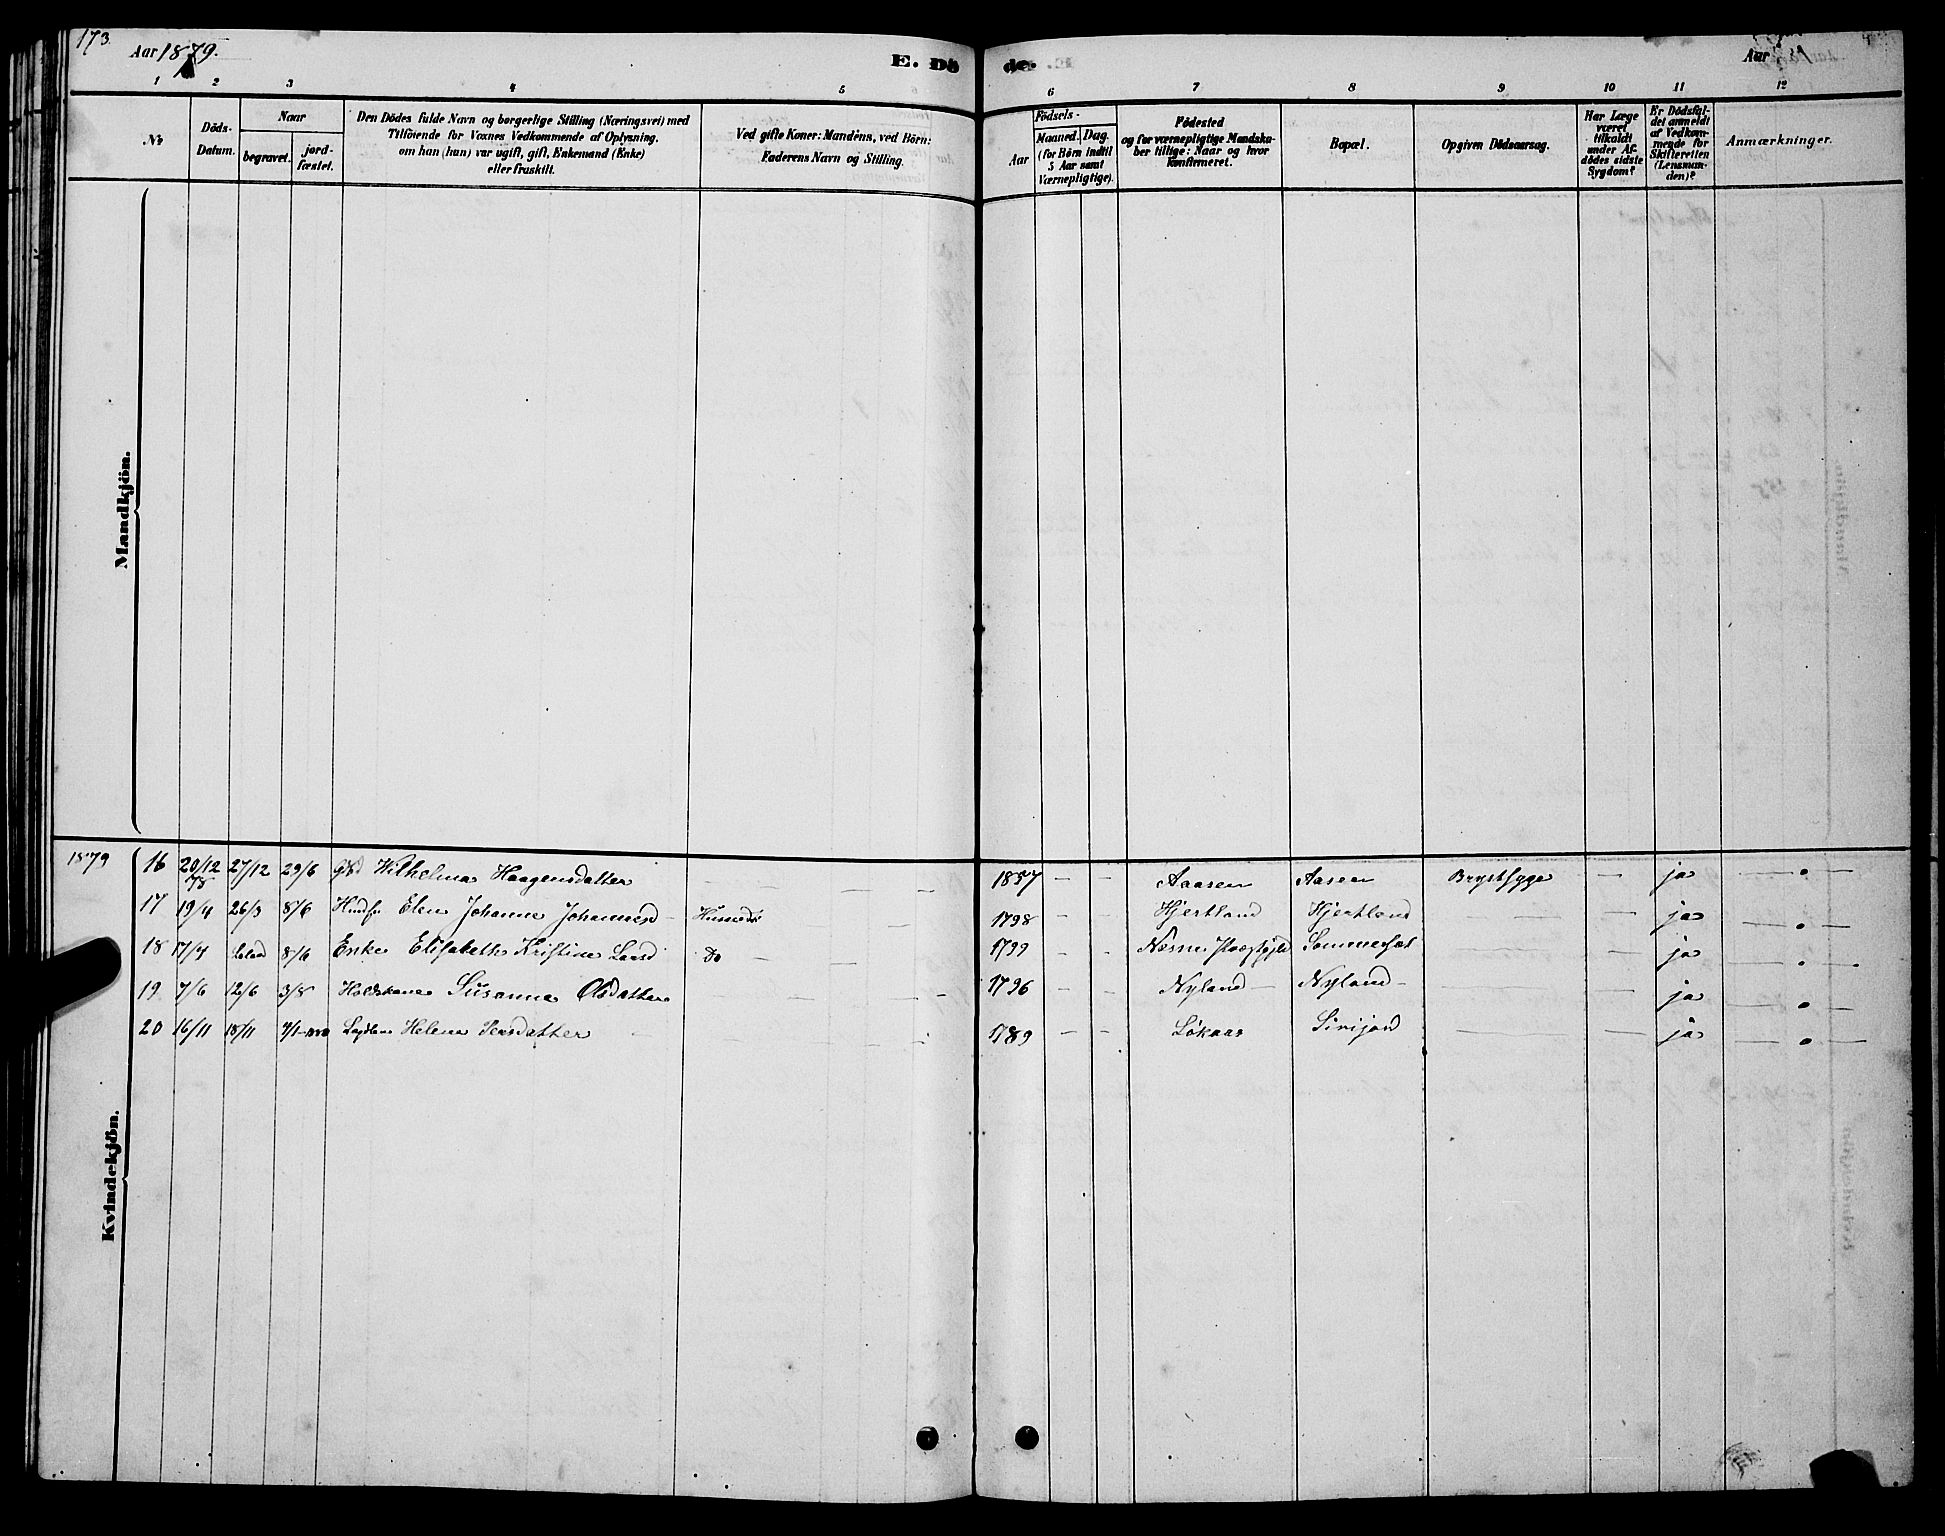 173.
Aar 1879.
E. Dö
de.
Aar
1 2 3 4 5
6 7 8 9 10 11 12
Nr
Döds-
Datum.
Naar
begravet.
jord-
fæstet.
Den Dödes fulde Navn og borgerlige Stilling (Næringsvei) med
Tilföiende for Voxnes Vedkommende af Oplysning.
om han (hun) var ugift, gift, Enkemand (Enke)
eller fraskilt.
Ved gifte Koner: Mandens, ved Börn:
Faderens Navn og Stilling.
Födsels-
Aar
Maaned. Dag.
(for Börn indtil
5 Aar samt
Værnepligtige).
Födested
og for værnepligtige Mandska-
ber tillige: Naar og hvor
konfirmeret.
Bopæl.
Opgiven Dödsaarsag.
Har Læge
været
tilkaldt
under Af-
dödes sidste
Sygdom?
Er Dödsfal-
det anmeldt
af Vedkom-
mende for
Skifteretten
(Lensman-
den)?
Anmærkninger.
Mandkjön.
Kvindekjön.
1879 16 20/12 78 27/12 29/6 Wilhelma Haagensdatter — — — 1857 — — Aaasen Aasen Brystsyge — ja — o —
17 19/4 26/3 8/6 Elen Johanne Johannesd — 1798 — — Hjertland Hjertland — — ja — o —
18 17/4 8/6 Enke Elisabeth Kristine Larsd Do — — 1799 — — Nesne Præstgjld Sommersæt — — ja — o —
19 7/6 12/6 3/8 Holdskone Susanna Olsdatter — — — 1796 — — Nyland — Nyland — — — ja — o —
20 16/11 18/11 Helena Persdatter — — — 1789 — — Lökaas Sirijord — — ja — o —